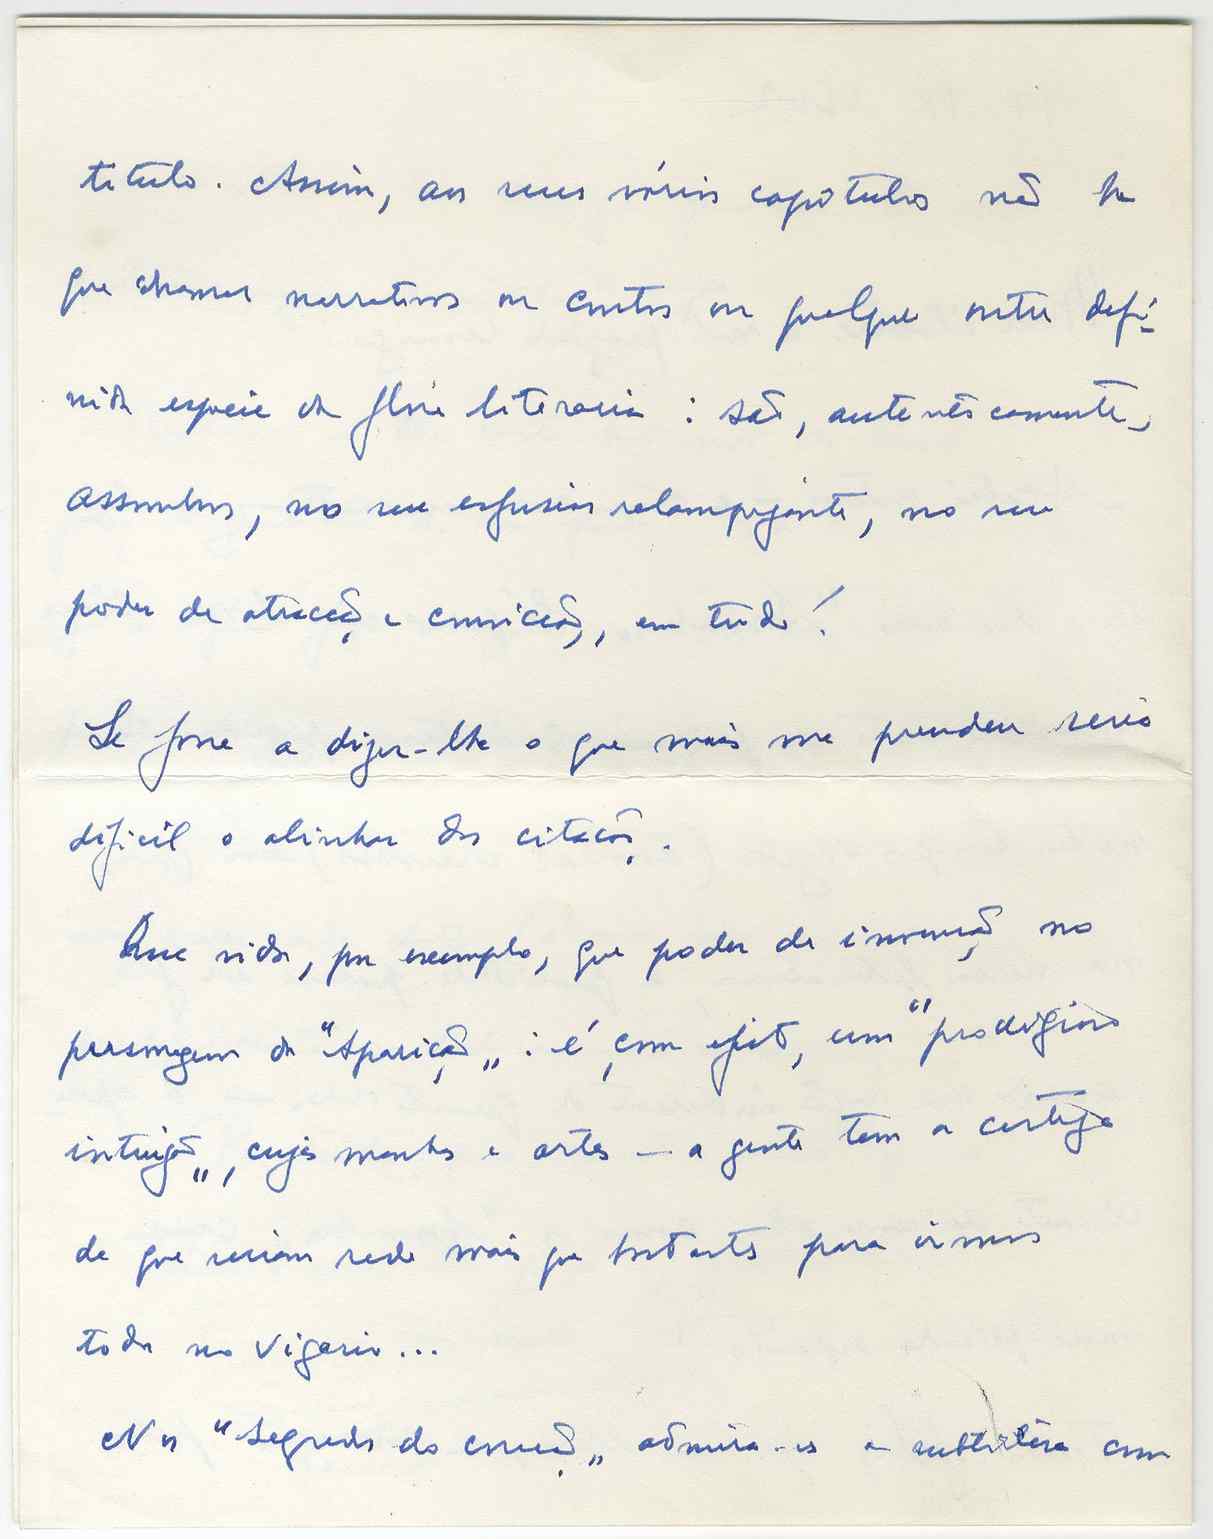 titulo. Assim, aos seus vários capitulos não ha
que chamar narrativas ou contos ou qualquer outra defi-
nida especie da flora literaria: são, autenticamente,
assombros, no seu esfusiar relampejante, no seu
poder de atracção e convicção, em tudo!
Se fosse a dizer-lhe o que mais me prendeu seria
dificil o alinhar das citações.
Que vida, por exemplo, que poder de invenção no
personagem da "Aparição": é, com efeito, um "prodigioso
intrujão", cujas manhas e artes — a gente tem a certeza
de que seriam rede mais que bastante para irmos
todos no vigario...
No "Segredo do coração" admira-se a subtileza com